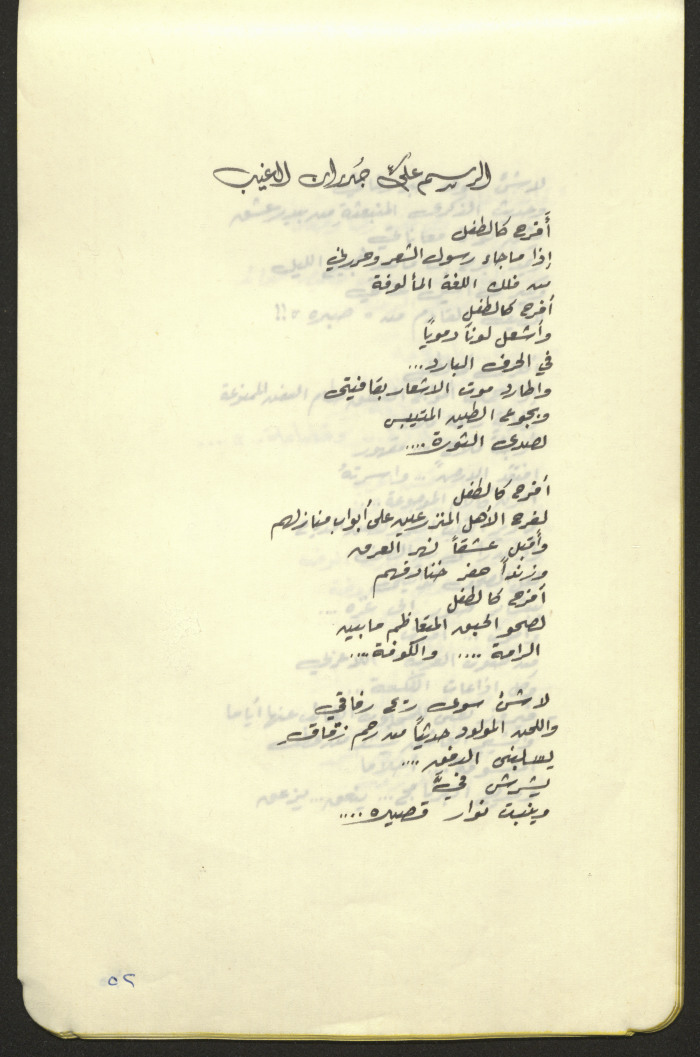 الرسم على جدران الغيب
أفرح كالطفل
إذا ما جاء رسول الشعر وحررني
من فلك اللغة المألوفة
أفرح كالطفل
وأشعل لوناً دموياً
في الحرف البارد...
واطارد موت الاشعار بقافيتي
وبجوع الطين المتيبس
لصدى الثورة....
أفرح كالطفل
لفرح الأهل المنزرعين على أبواب منازلهم
وأقبل عشقاً نهر العرق
وزنداً حفر خنادقهم
أفرح كالطفل
لصحو الحبق المتعاظم ما بين
الرامة .... والكوفة....
لا شئ سوى رفاقي
واللحن المولود حديثاً من رحم زقاق
يسلبني الدفق ....
يشرش فيَّ
وينبت نوار قصيده....
٥٢